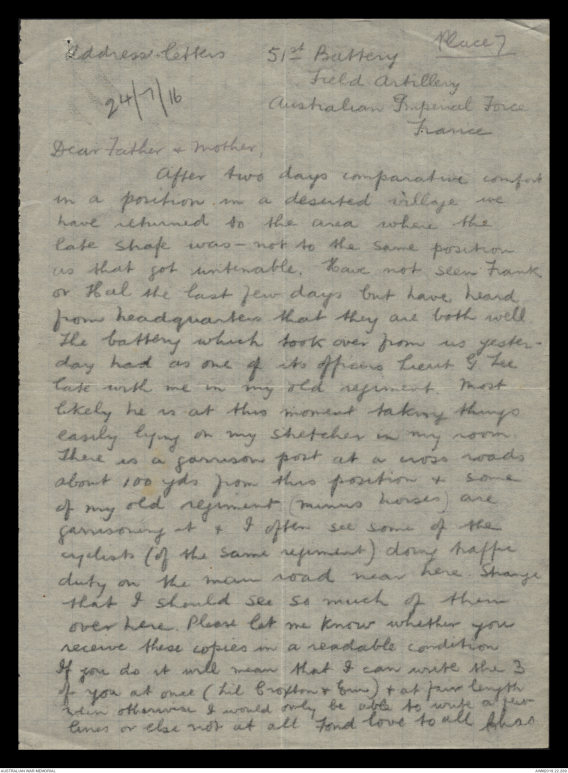 Place 7
Address letters 51st Battery
Field Artillery
24/7/16
Australian Imperial Force
France
Dear Father & Mother,
After two days comparative comfort
in a position in a deserted village we
have returned to the area where the
late strafe was - not to the same position
as that got untenable. Have not seen Frank
or Hal the last few days but have heard
from headquarters that they are both well
The battery which took over from us yester-
day had as one of its officers Lieut G Lee
late with me in my old regiment. Most
likely he is at this moment taking things
easily lying on my stretcher in my room.
There is a garrison post at a cross roads
about 100 yds from this position & some
of my old regiment (minus horses) are
garrisoning it & I often see some of the
cyclists (of the same regiment) doing traffic
duty on the main road near here. Strange
that I should see so much of them
over here. Please let me know whether you
receive these copies in a readable condition
If you do it will mean that I can write the 3
of you at once (Lil Croxton & Eun) & at fair length
otherwise I would only be able to write a few
lines or else not at all Fond love to all
AUSTRALIAN WAR MEMORIAL